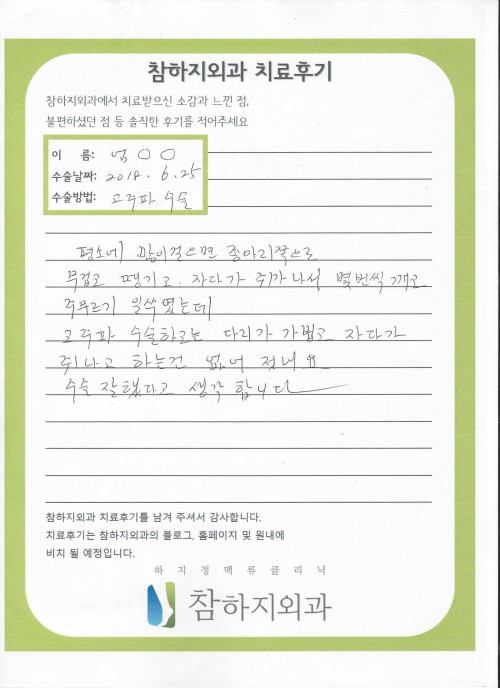 참하지외과 치료후기
참하지외과에서 치료받으신 소감과 느낀 점,
불편하셨던 점 등 솔직한 후기를 적어주세요
이 름: 엄○○
수술날짜: 2018. 6. 25
수술방법: 고주파 수술
평소에 많이걸으면 종아리쪽으로
무겁고 땡기고. 자다가 쥐가 나서 몇번씩 깨고
주무르기 일쑤였는데
고주파 수술하고는 다리가 가볍고 자다가
쥐나고 하는건 없어 졌네요
수술 잘했다고 생각 합니다
참하지외과 치료후기를 남겨 주셔서 감사합니다.
치료후기는 참하지외과의 블로그, 홈페이지 및 원내에
비치 될 예정입니다.
하지정맥류클리닉
참하지외과